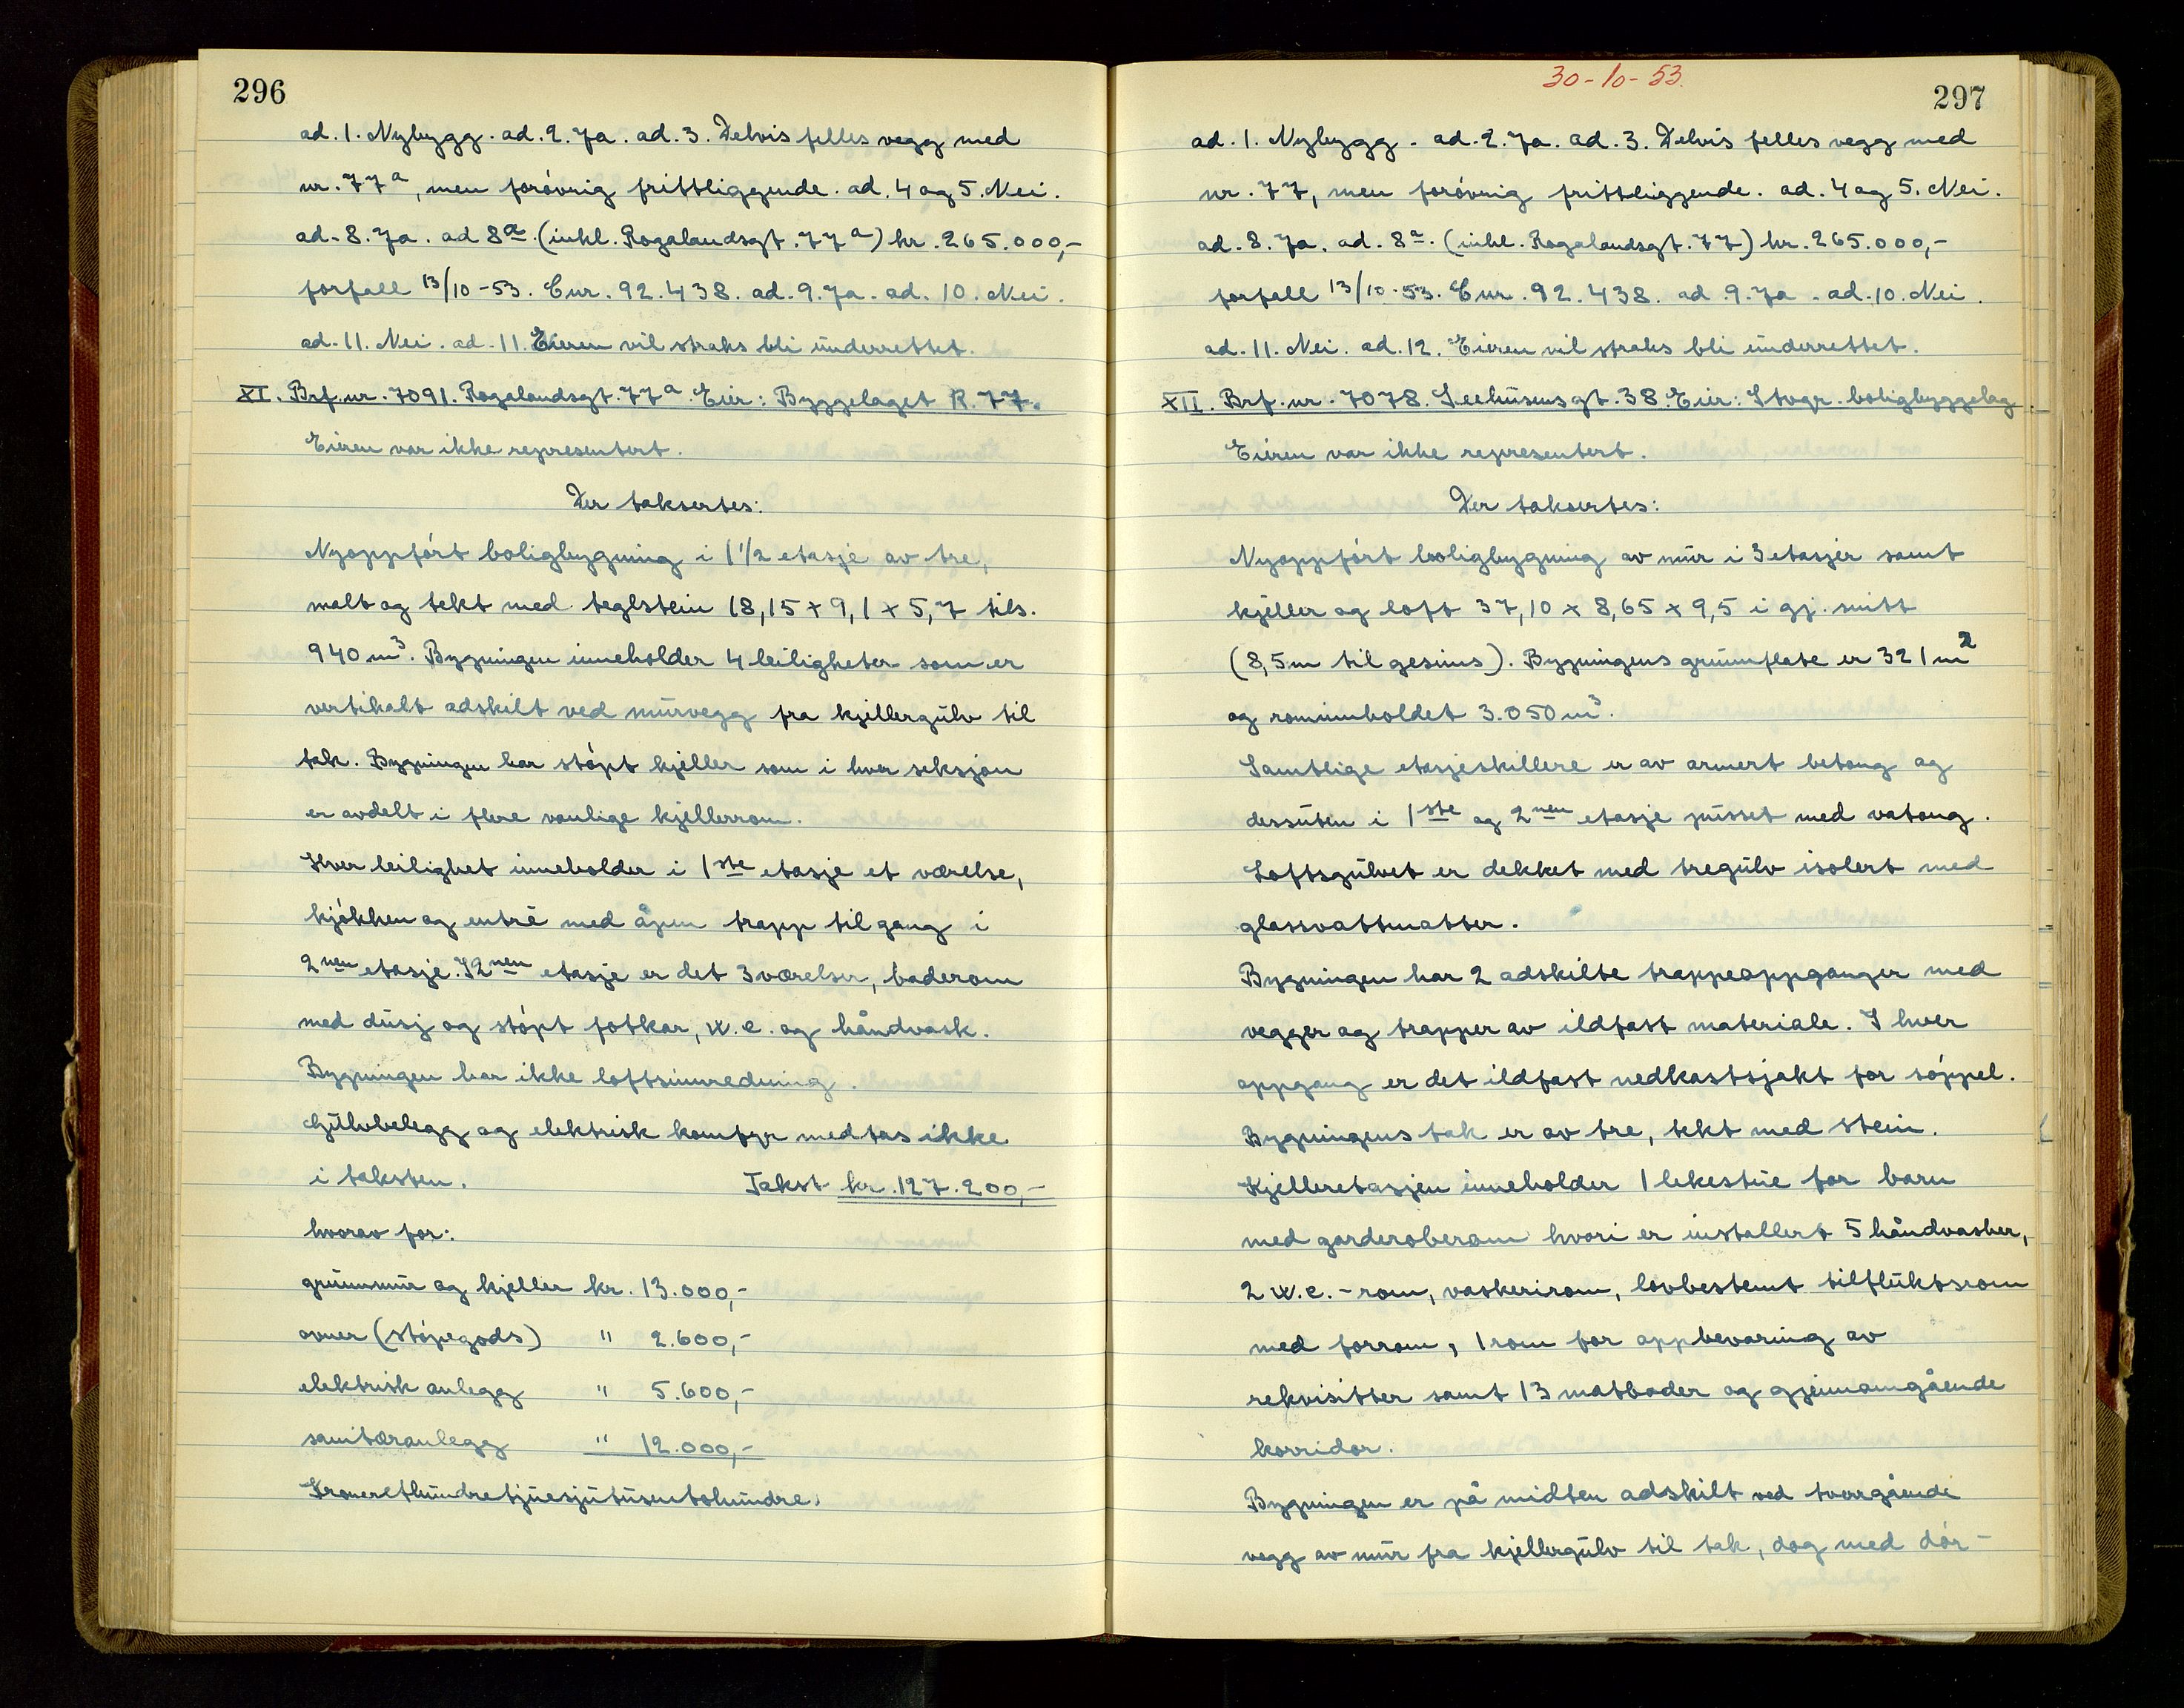 296
ad. 1. Nybygg. ad. 2. Ja. ad. 3. Delvis felles vegg med
nr. 77a, men forøvrig frittliggende. ad. 4 og 5. Nei.
ad. 8. Ja. ad 8a. (inkl. Rogalandsgt. 77a) kr. 265.000,-
forfall 13/10-53. Cnr. 92.438. ad. 9. Ja. ad. 10. Nei.
ad. 11. Nei. ad. 11. Eieren vil straks bli underrettet.
XI. Brf. nr. 7091. Rogalandsgt. 77a. Eier: Byggelaget R. 77.
Eieren var ikke representert.
Der taksertes:
Nyoppført boligbygning i 1 1/2 etasje av tre,
malt og tekt med teglstein 18,15 x 9,1 x 5,7 tils.
940 m3. Bygningen inneholder 4 leiligheter som er
vertikalt adskilt ved murvegg fra kjellergulv til
tak. Bygningen har støpt kjeller som i hver seksjon
er avdelt i flere vanlige kjellerrom.
Hver leilighet inneholder i 1ste etasje et værelse,
kjøkken og entré med åpen trapp til gang i
2nen etasje. I 2nen etasje er det 3 værelser, baderom
med dusj og støpt fotkar, w.c. og håndvask.
Bygningen har ikke loftsinnredning.
Gulvbelegg og elektrisk komfyr medtas ikke
i taksten. Takst kr. 127.200,-
hvorav for:
grunnmur og kjeller kr. 13.000,-
ovner (støpegods) " 2.600,-
elektrisk anlegg " 5.600,-
sanitæranlegg " 12.000,-
Kroneretthundretjuesjutusentohundre.
30-10-53.
297
ad. 1. Nybygg. ad. 2. Ja. ad. 3. Delvis felles vegg med
nr. 77, men forøvrig frittliggende. ad. 4 og 5. Nei.
ad. 8. Ja. ad. 8a. (inkl. Rogalandsgt. 77) kr. 265.000,-
forfall 13/10-53. Cnr. 92.438. ad 9. Ja. ad. 10. Nei.
ad. 11. Nei. ad. 12. Eieren vil straks bli underrettet.
XII. Brf. nr. 7078. Seehusensgt. 38. Eier: Stvgr. boligbyggelag.
Eieren var ikke representert.
Der taksertes:
Nyoppført boligbygning av mur i 3 etasjer samt
kjeller og loft 37,10 x 8,65 x 9,5 i gj. snitt
(8,5m til gesims). Bygningens grunnflate er 321 m2
og rominnholdet 3.050 m3.
Samtlige etasjeskillere er av armert betong og
dessuten i 1ste og 2nen etasje pusset med vatong.
Loftsgulvet er dekket med tregulv isolert med
glassvattmatter.
Bygningen har 2 adskilte trappeoppganger med
vegger og trapper av ildfast materiale. I hver
oppgang er det ildfast nedkastsjakt for søppel.
Bygningens tak er av tre, tekt med stein.
Kjelleretasjen inneholder 1 lekestue for barn
med garderoberom hvori er installert 5 håndvasker,
2 w.c.-rom, vaskerirom, lovbestemt tilfluktsrom
med forrom, 1 rom for oppbevaring av
rekvisitter samt 13 matboder og gjennomgående
korridor.
Bygningen er på midten adskilt ved tverrgående
vegg av mur fra kjellergulv til tak, dog med dør-